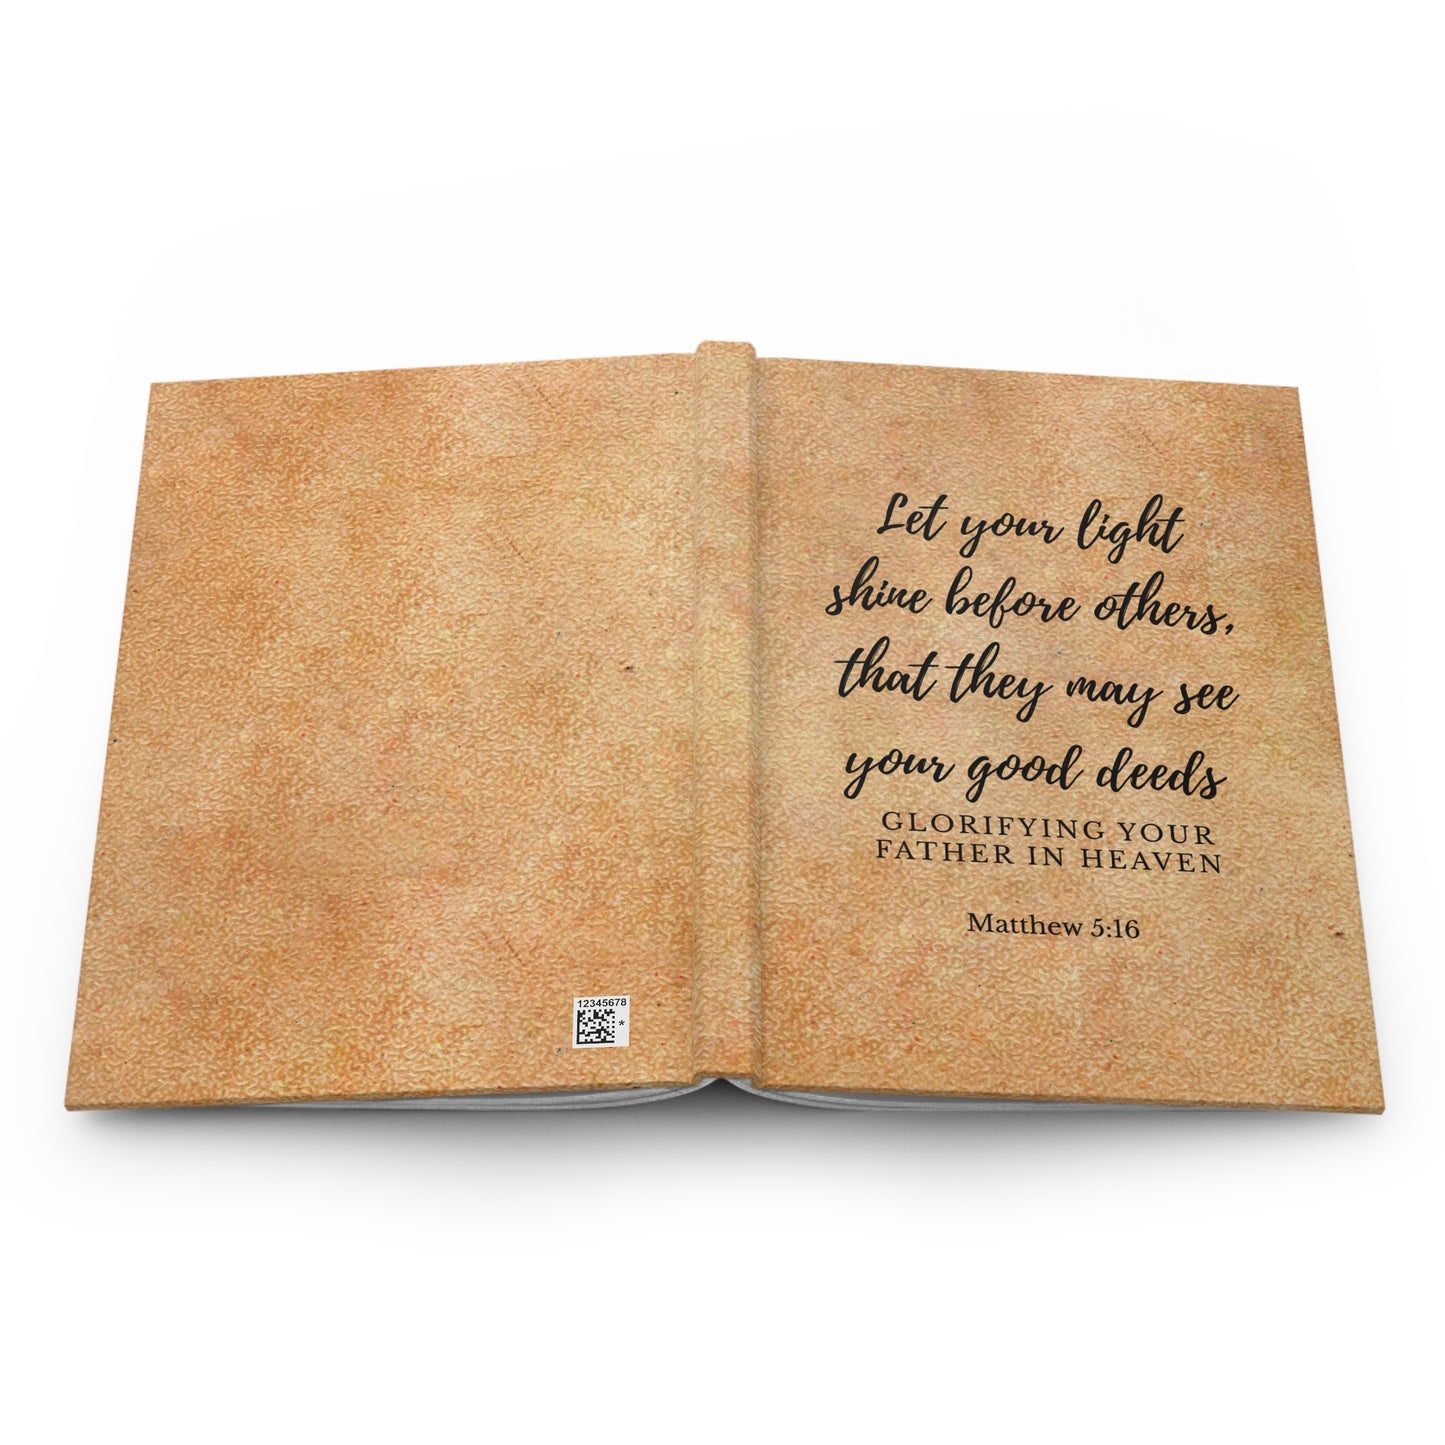 Let your light
shine before others,
that they may see
your good deeds
GLORIFYING YOUR
FATHER IN HEAVEN
Matthew 5:16
12345678
*